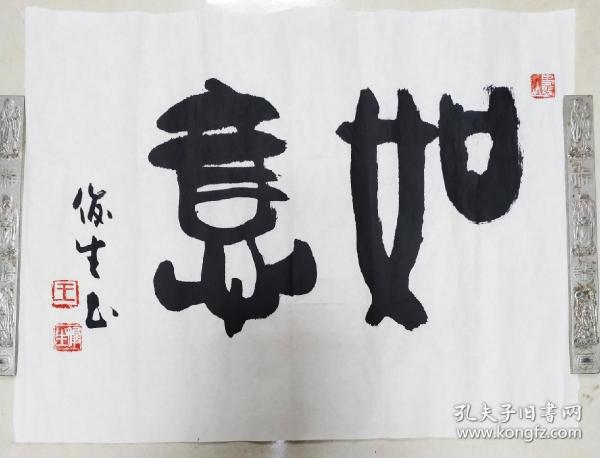 如意
俊生书
王
孔夫子旧书网
www.kongfz.com